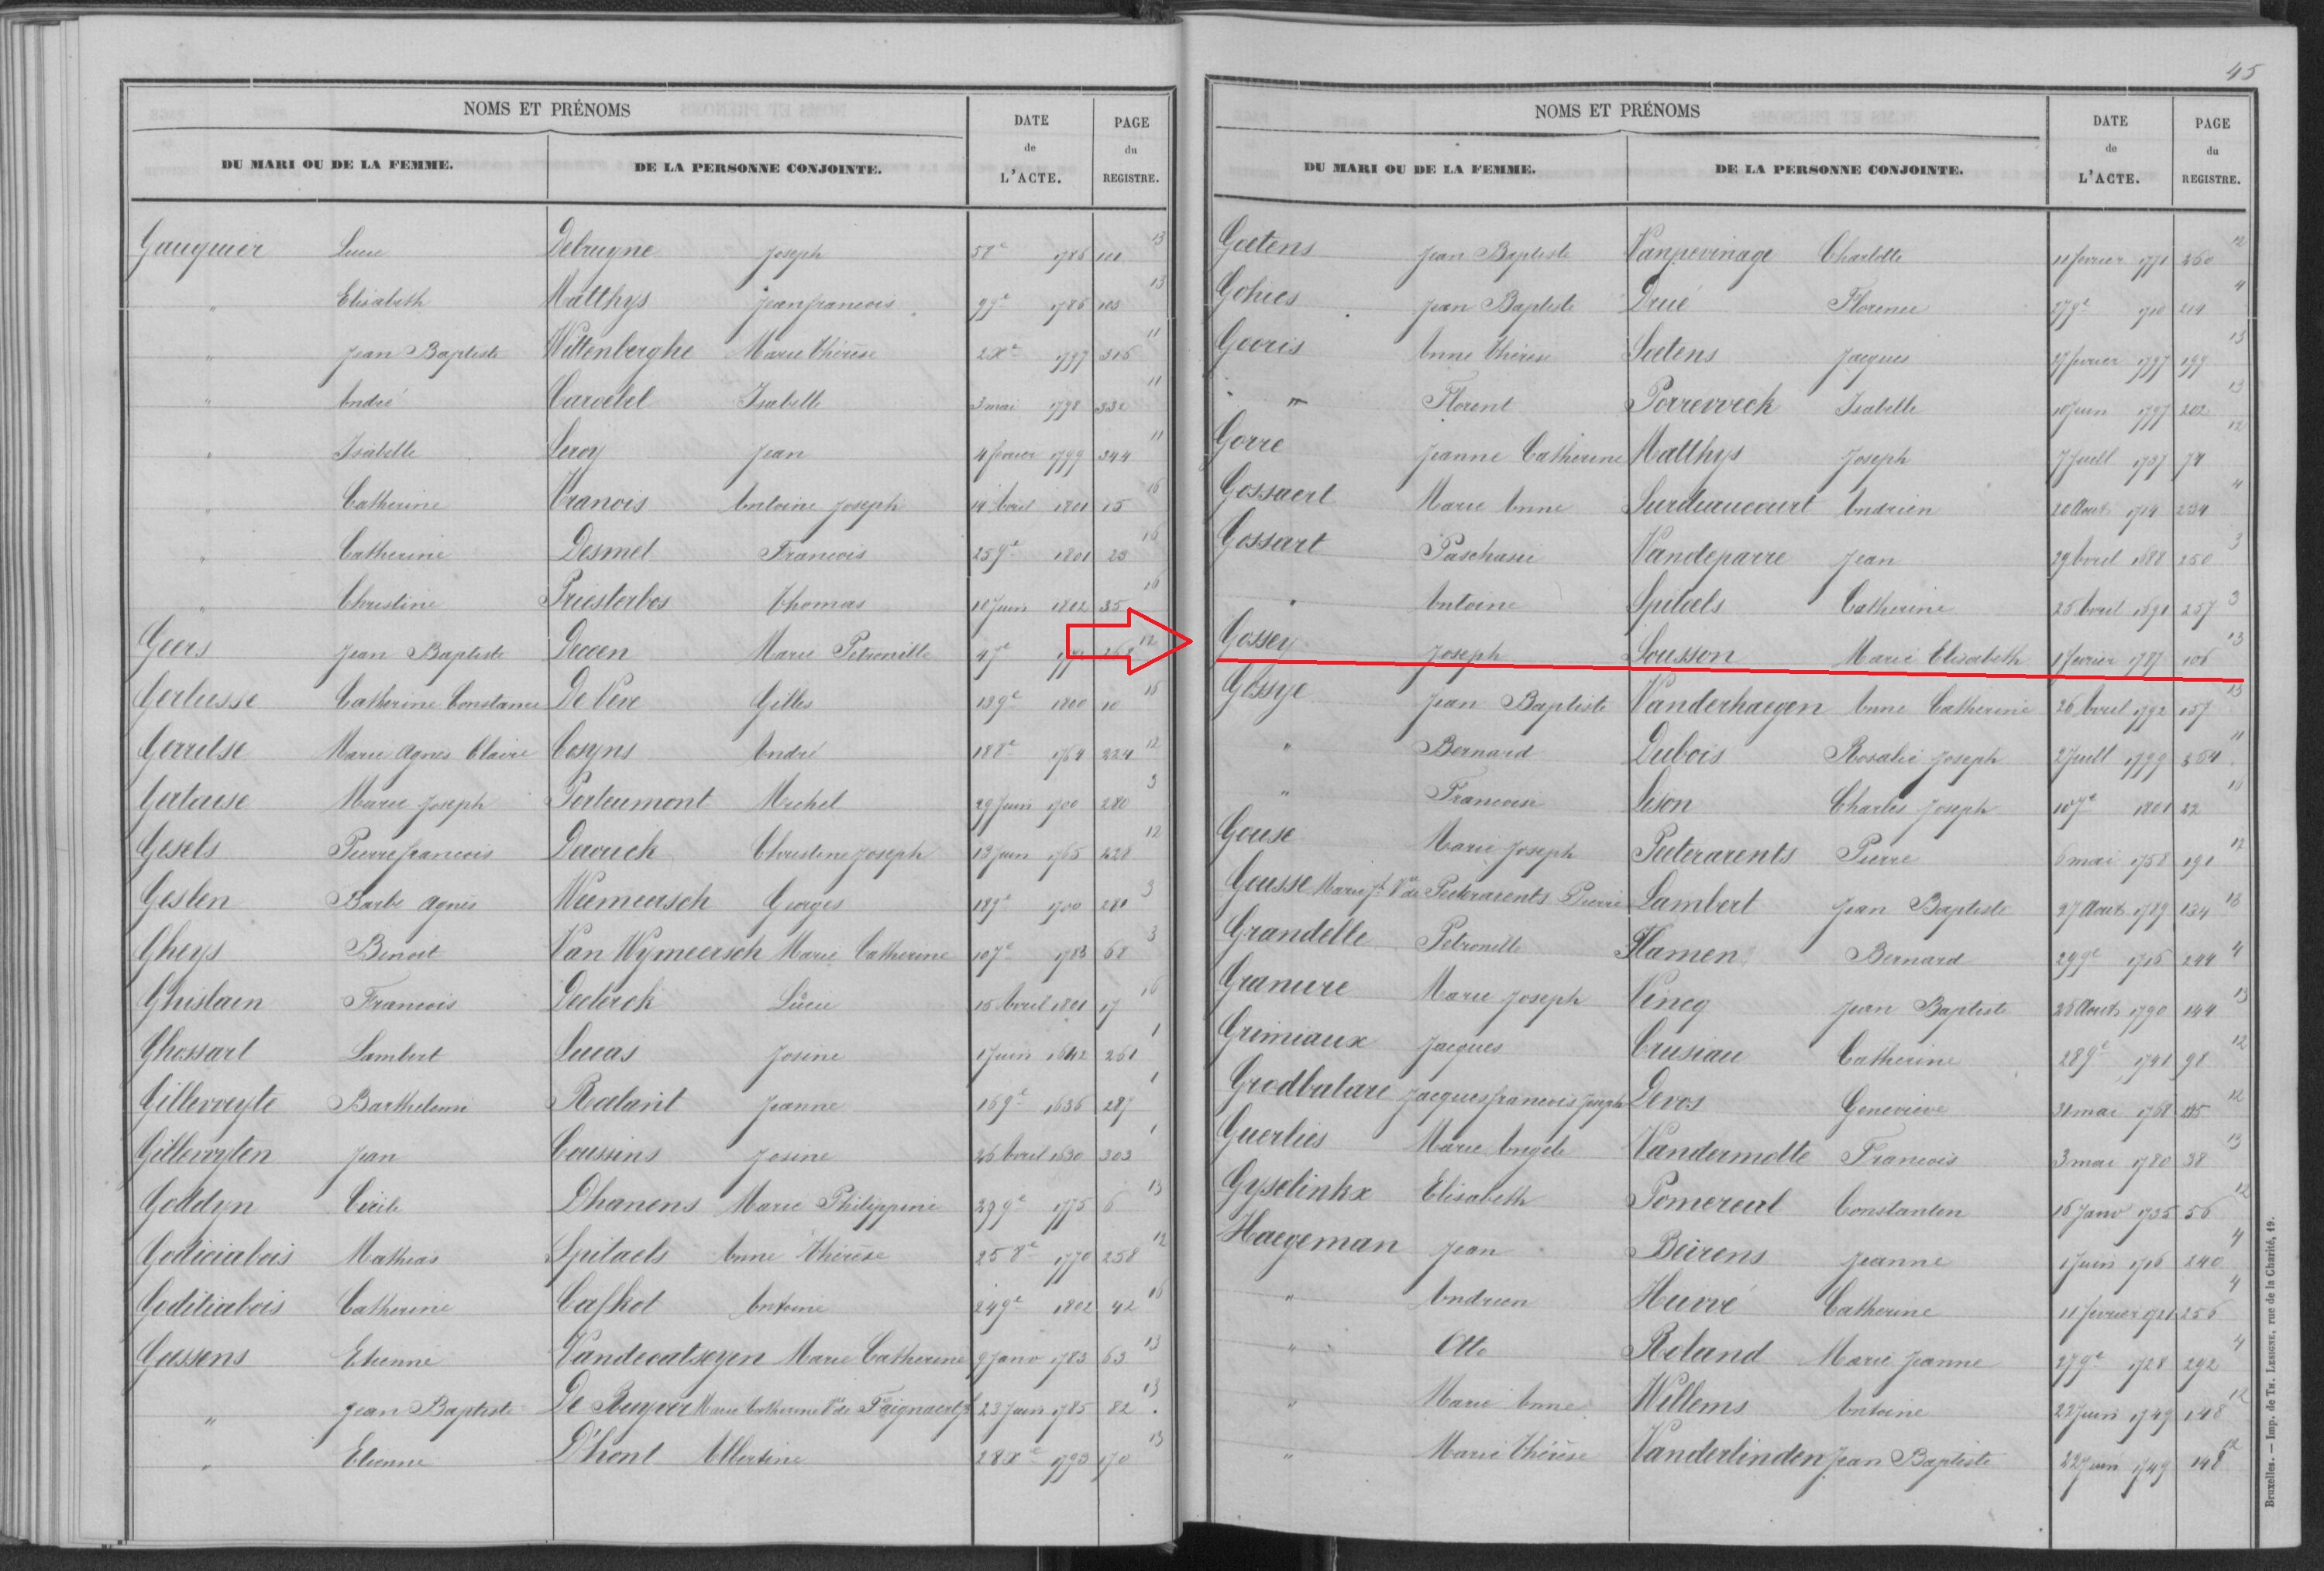 NOMS ET PRÉNOMS
DU MARI OU DE LA FEMME. DE LA PERSONNE CONJOINTE. DATE de L'ACTE. PAGE du REGISTRE.
Gauquier Lucie Debruyne Joseph 1786 111 13
" Elisabeth Matthys Jean francois 1786 103 13
" Jean Baptiste Wittenberghe Marie Thérèse 2 Xe 1797 316 11
" André Carvelel Isabelle 3 mai 1798 332 11
" Isabelle Leroy Jean 4 fevrier 1799 344 11
" Catherine Vranois Antoine Joseph 14 Avril 1801 15 16
" Catherine Desmet Francois 25 9e 1801 23 16
" Christine Priesterbos Thomas Juin 1802 35 16
Geers Jean Baptiste Marie Petronille 12
Gerbusse Catherine Constance De Vere Gilles 13 9e 1800 10 16
Gerretse Marie Agnes Claire Cosyns André 18 8e 1764 224 12
Gertouse Marie Joseph Porteumont Michel 29 Juin 1700 280 3
Gesels Pierre francois Christine Joseph 13 Juin 1765 228 12
Geslen Barbe Agnès Weemeersch Georges 18 9e 1700 281 3
Gheys Benoit Van Wymeersch Marie Catherine 10 7e 1783 68 3
Ghislain Francois Declerck Lucie 16 Avril 1801 17 16
Ghossart Lambert Lucas Josine 1 Juin 1642 261 1
Gillevveyte Barthelemi Ralant Jeanne 16 9e 1636 287 1
Gillewyten Jean Coussins Josine 26 Avril 1630 303 1
Goddyn Cécile Dhanens Marie Philippine 29 9e 1775 6 13
Godiciabois Mathias Spitaels Anne Thérèse 25 8e 1770 258 12
Goditiabois Catherine Cafkot Antoine 24 9e 1802 42 16
Gossens Etienne Vandecatseyen Marie Catherine 9 Janv 1783 63 13
" Jean Baptiste De Ruyver Marie Catherine Ve de 23 Juin 1785 82 13
" Etienne D'hont Albertine 28 Xe 1793 170 13
45
NOMS ET PRÉNOMS
DU MARI OU DE LA FEMME. DE LA PERSONNE CONJOINTE. DATE de L'ACTE. PAGE du REGISTRE.
Goetens Jean Baptiste Vanpevinage Charlotte 11 fevrier 1771 260 12
Gohies Jean Baptiste Drué Florence 27 9e 1710 214 4
Gooris Anne Thérèse Soetens Jacques 27 fevrier 1797 199 13
" Florent Porrevveck Isabelle 10 Juin 1797 202 13
Gorre Jeanne Catherine Matthys Joseph 7 Juill 1737 78 12
Gossaert Marie Anne Surdiaucourt Andrien 20 Aout 1714 234 4
Gossart Paschasie Vandeparre Jean 29 Avril 1688 250 3
" Antoine Spitaels Catherine 25 Avril 1691 257 3
Gossey Joseph Sousson Marie Elisabeth 1 fevrier 1787 106 13
Gossye Jean Baptiste Vanderhaegen Anne Catherine 26 Avril 1792 157 13
" Bernard Dubois Rosalie Joseph 2 Juill 1799 354 11
" Francoise Leson Charles Joseph 10 7e 1801 22 16
Gouse Marie Joseph Peeterarents Pierre 6 mai 1758 191 12
Gousse Marie Jh Ve de Peeterarents Pierre Lambert Jean Baptiste 27 Aout 1789 134 13
Grandelle Petronille Flamen Bernard 29 9e 1716 244 4
Granure Marie Joseph Vincq Jean Baptiste 28 Aout 1790 144 13
Grimiaux Jacques Crusiau Catherine 28 9e 1741 98 12
Grodbulare Jacques francois Joseph Devos Genevieve 31 mai 1768 245 12
Guerlies Marie Angele Vandermotte Francois 3 mai 1780 38 13
Gyselinkx Elisabeth Pomereul Constanten 16 Janv 1735 56 12
Haegeman Jean Beirens Jeanne 1 Juin 1716 240 4
" Andrien Huvvé Catherine 11 fevrier 1721 256 4
" Otto Roland Marie Jeanne 27 9e 1728 292 4
" Marie Anne Willems Antoine 22 Juin 1749 148 12
" Marie Thérèse Vanderlinden Jean Baptiste 22 Juin 1749 148 12
Bruxelles. — Imp. de TH. LESIGNE, rue de la Charité, 49.